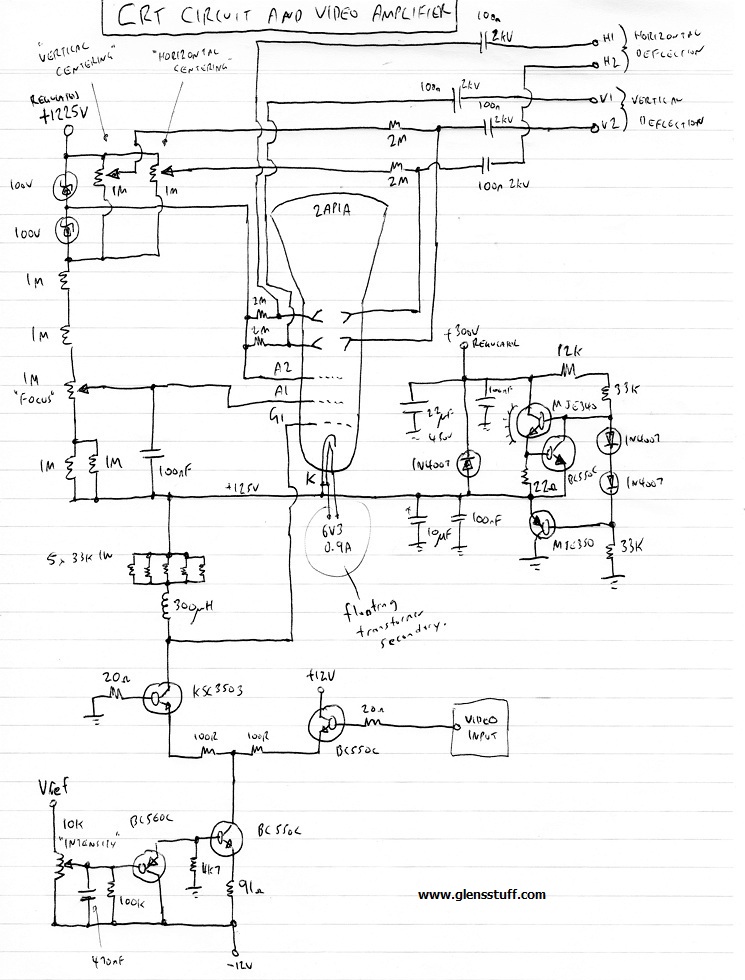 CRT CIRCUIT AND VIDEO AMPLIFIER
100n
2KV
H1
H2
HORIZONTAL
DEFLECTION
"VERTICAL
CENTERING"
"HORIZONTAL
CENTERING"
100n
2KV
100n
2KV
V1
V2
VERTICAL
DEFLECTION
REGULATED
+1225V
2M
2M
100n 2KV
1M
1M
100V
100V
2AP1A
1M
2M
2M
1M
+300V
REGULATED
A2
A1
G1
K
1M
"FOCUS"
22µF
450V
100nF
12K
33K
MJE340
1N4007
BC550C
1N4007
1N4007
22Ω
1M
1M
100nF
+125V
10µF
100nF
MJE350
33K
6V3
0.9A
5x 33K 1W
300µH
floating
transformer
secondary.
20Ω
KSC3503
+12V
20Ω
VIDEO
INPUT
100R
100R
BC550C
Vref
10K
"INTENSITY"
BC560C
BC550C
4K7
91Ω
100K
470nF
-12V
www.glensstuff.com